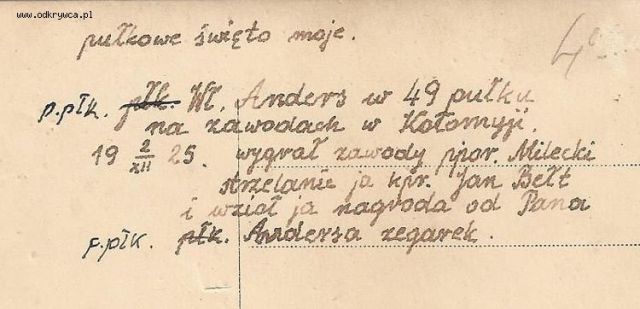 www.odkrywca.pl
pułkowe święto moje.
4
p.płk. płk. Wł. Anders w 49 pułku
na zawodach w Kołomyji.
19 2/XII 25. wygrał zawody ppor. Milecki
strzelanie ja kpr. Jan Bełt
i wzioł ja nagroda od Pana
p.płk. płk. Andersa zegarek.